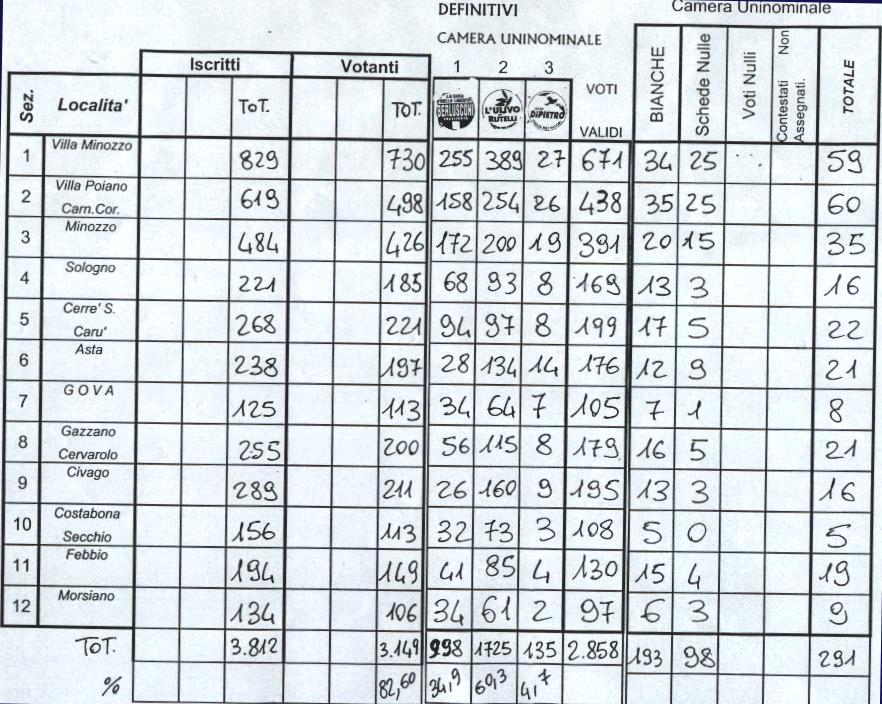 DEFINITIVI
CAMERA UNINOMINALE
Camera Uninominale
Iscritti Votanti 1 2 3
Sez. Localita' ToT. TOT. VOTI VALIDI BIANCHE Schede Nulle Voti Nulli Contestati Non Assegnati. TOTALE
L'ULIVO RUTELLI DIPIETRO
1 Villa Minozzo 829 730 255 389 27 671 34 25 59
2 Villa Poiano Carn.Cor. 619 498 158 254 26 438 35 25 60
3 Minozzo 484 426 172 200 19 391 20 15 35
4 Sologno 221 185 68 93 8 169 13 3 16
5 Cerre' S. Caru' 268 221 94 97 8 199 17 5 22
6 Asta 238 197 28 134 14 176 12 9 21
7 GOVA 125 113 34 64 7 105 7 1 8
8 Gazzano Cervarolo 255 200 56 115 8 179 16 5 21
9 Civago 289 211 26 160 9 195 13 3 16
10 Costabona Secchio 156 113 32 73 3 108 5 0 5
11 Febbio 194 149 41 85 4 130 15 4 19
12 Morsiano 134 106 34 61 2 97 6 3 9
TOT. 3.812 3.149 998 1725 135 2.858 193 98 291
% 82,60 34,9 60,3 4,7